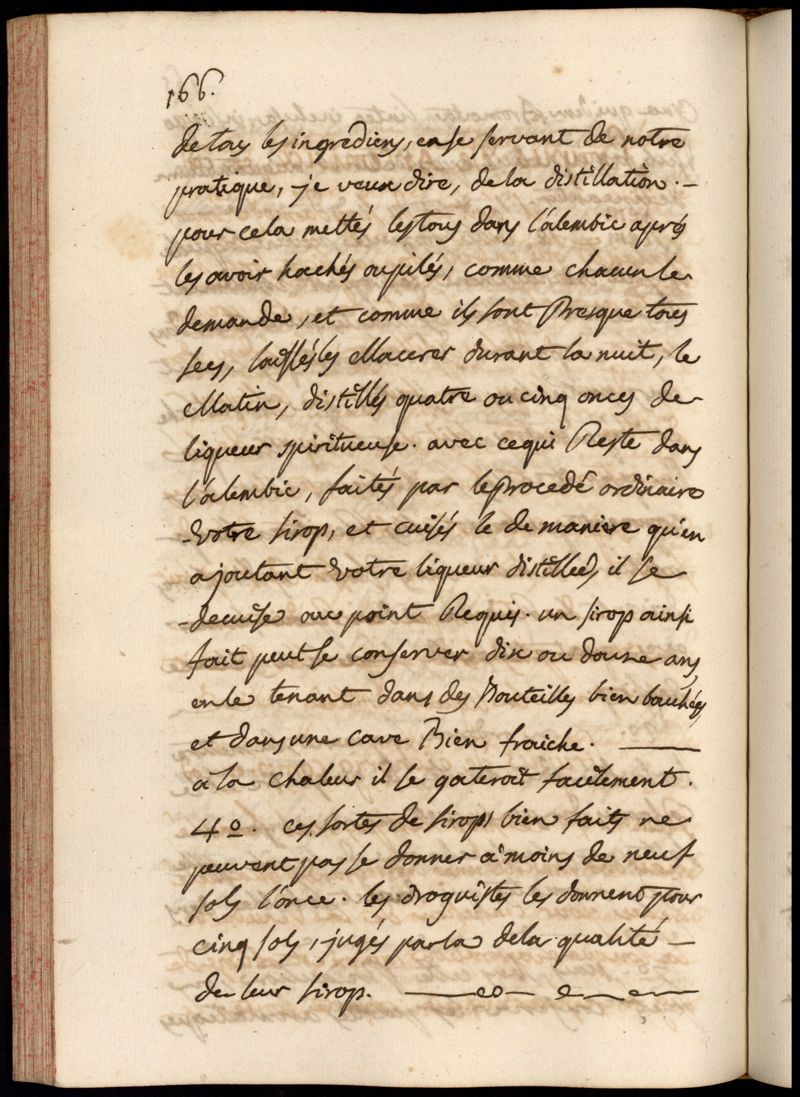 166.
de tous les ingrédiens, en se servant de notre
pratique, je veux dire, de la distillation. –
pour cela mettés les tous dans l'alembic aprés
les avoir hachés ou pilés, comme chacun le
demande, et comme ils sont Presque tous
secs, laissés les Macerer durant la nuit, le
Matin, distillés quatre ou cinq onces de
liqueur spiritueuse. avec ce qui Reste dans
l'alembic, faités par le procedé ordinaire
-votre sirop, et cuisés le de maniere qu'en
ajoutant votre liqueur distillée, il se
-decuise au point Requis. un sirop ainsi
fait peut se conserver dix ou douze ans,
en le tenant dans des Bouteilles bien bouchées,
et dans une cave Bien fraiche. ——
a la chaleur il se gateroit facilement.
4º. ces sortes de sirops bien faits ne
peuvent pas se donner a moins de neuf
sols l'once. les droguistes les donnent pour
cinq sols, jugés par la de la qualité –
de leur sirop.